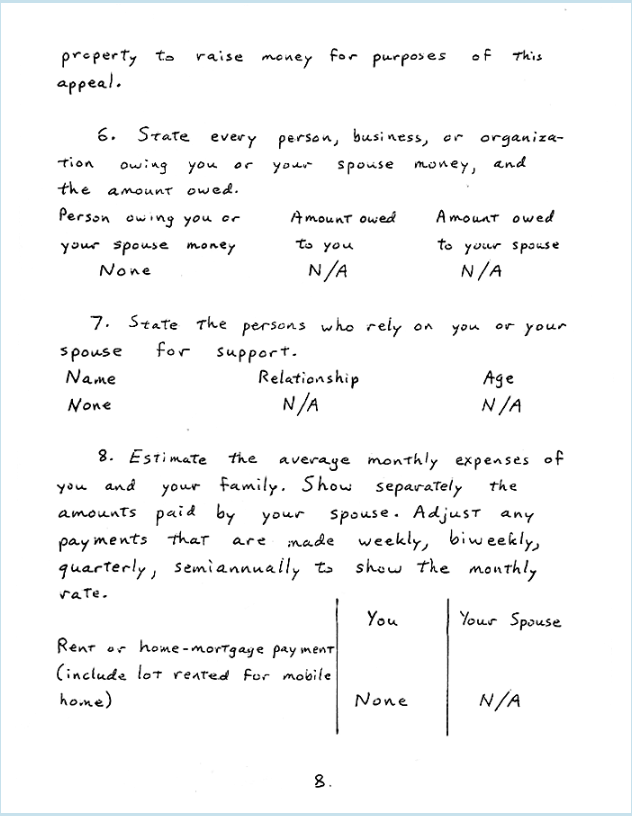 property to raise money for purposes of this
appeal.
6. State every person, business, or organiza-
tion owing you or your spouse money, and
the amount owed.
Person owing you or Amount owed Amount owed
your spouse money to you to your spouse
None N/A N/A
7. State the persons who rely on you or your
spouse for support.
Name Relationship Age
None N/A N/A
8. Estimate the average monthly expenses of
you and your family. Show separately the
amounts paid by your spouse. Adjust any
payments that are made weekly, biweekly,
quarterly, semiannually to show the monthly
rate.
You Your Spouse
Rent or home-mortgage payment
(include lot rented for mobile
home) None N/A
8.